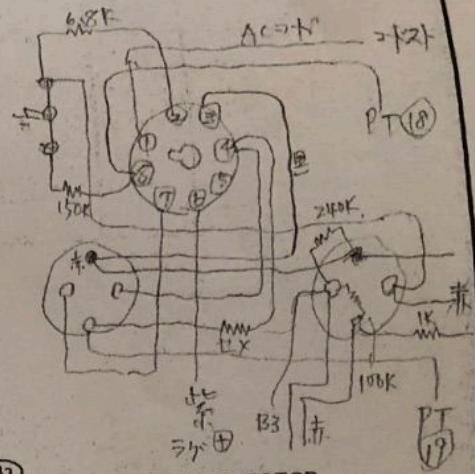 6.8K
ACコード
コードスト
PT 18
1
4
5
6
7
8
黒
150K
240K
赤
赤
1K
100K
紫
ラグ +
B3
赤
PT
19